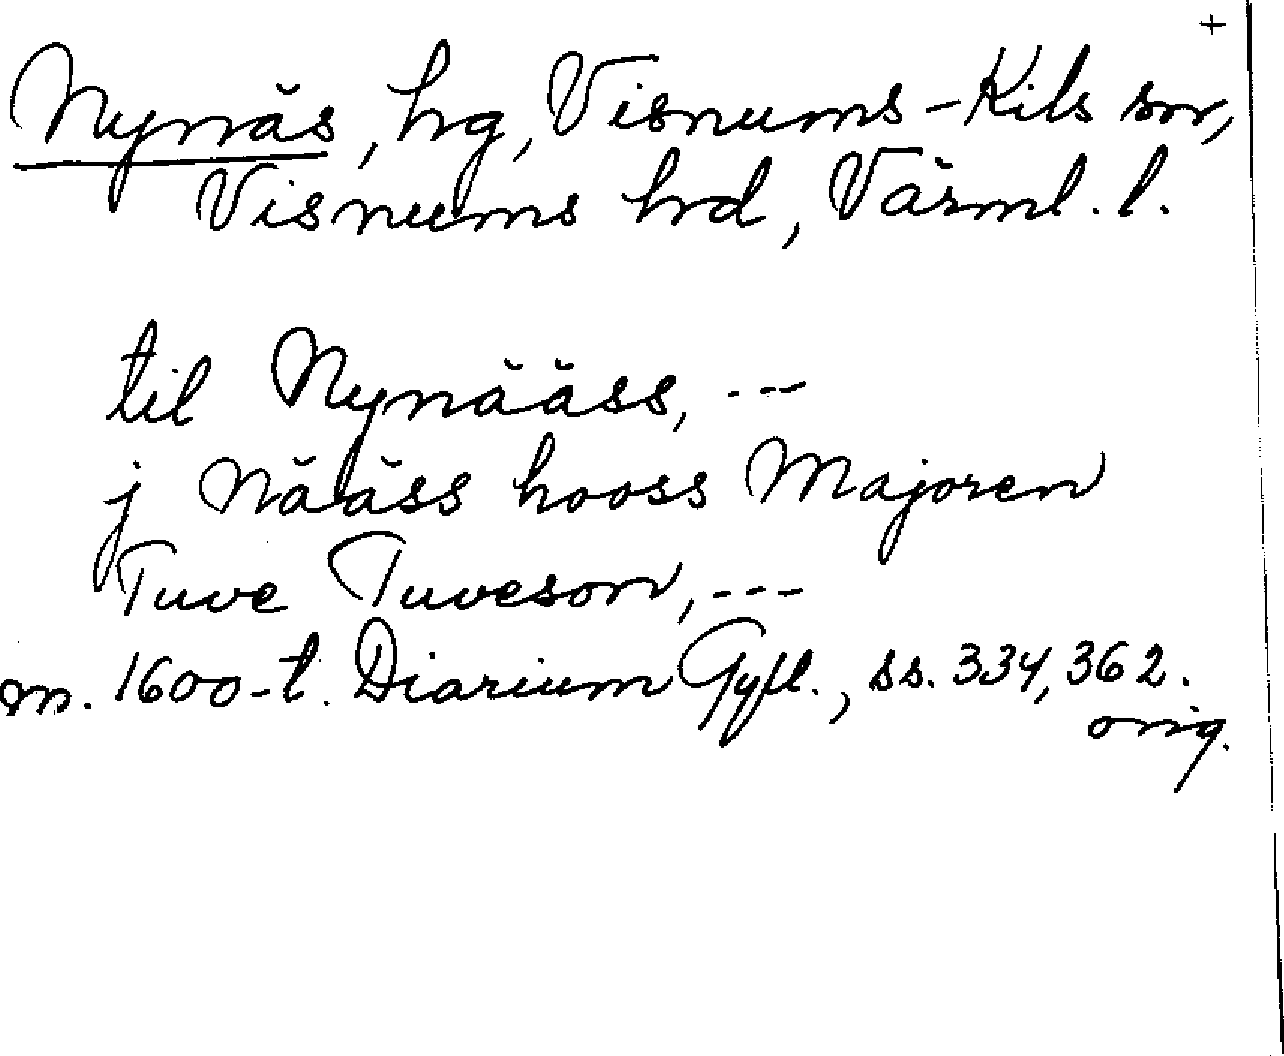 +
Nynäs, hrg, Visnums-Kils sn,
Visnums hrd, Värml. l.
til Nynääss, ---
j Nääss hooss Majoren
Tuve Tuveson, ---
m. 1600-t. Diarium Gyll., ss. 334, 362.
orig.